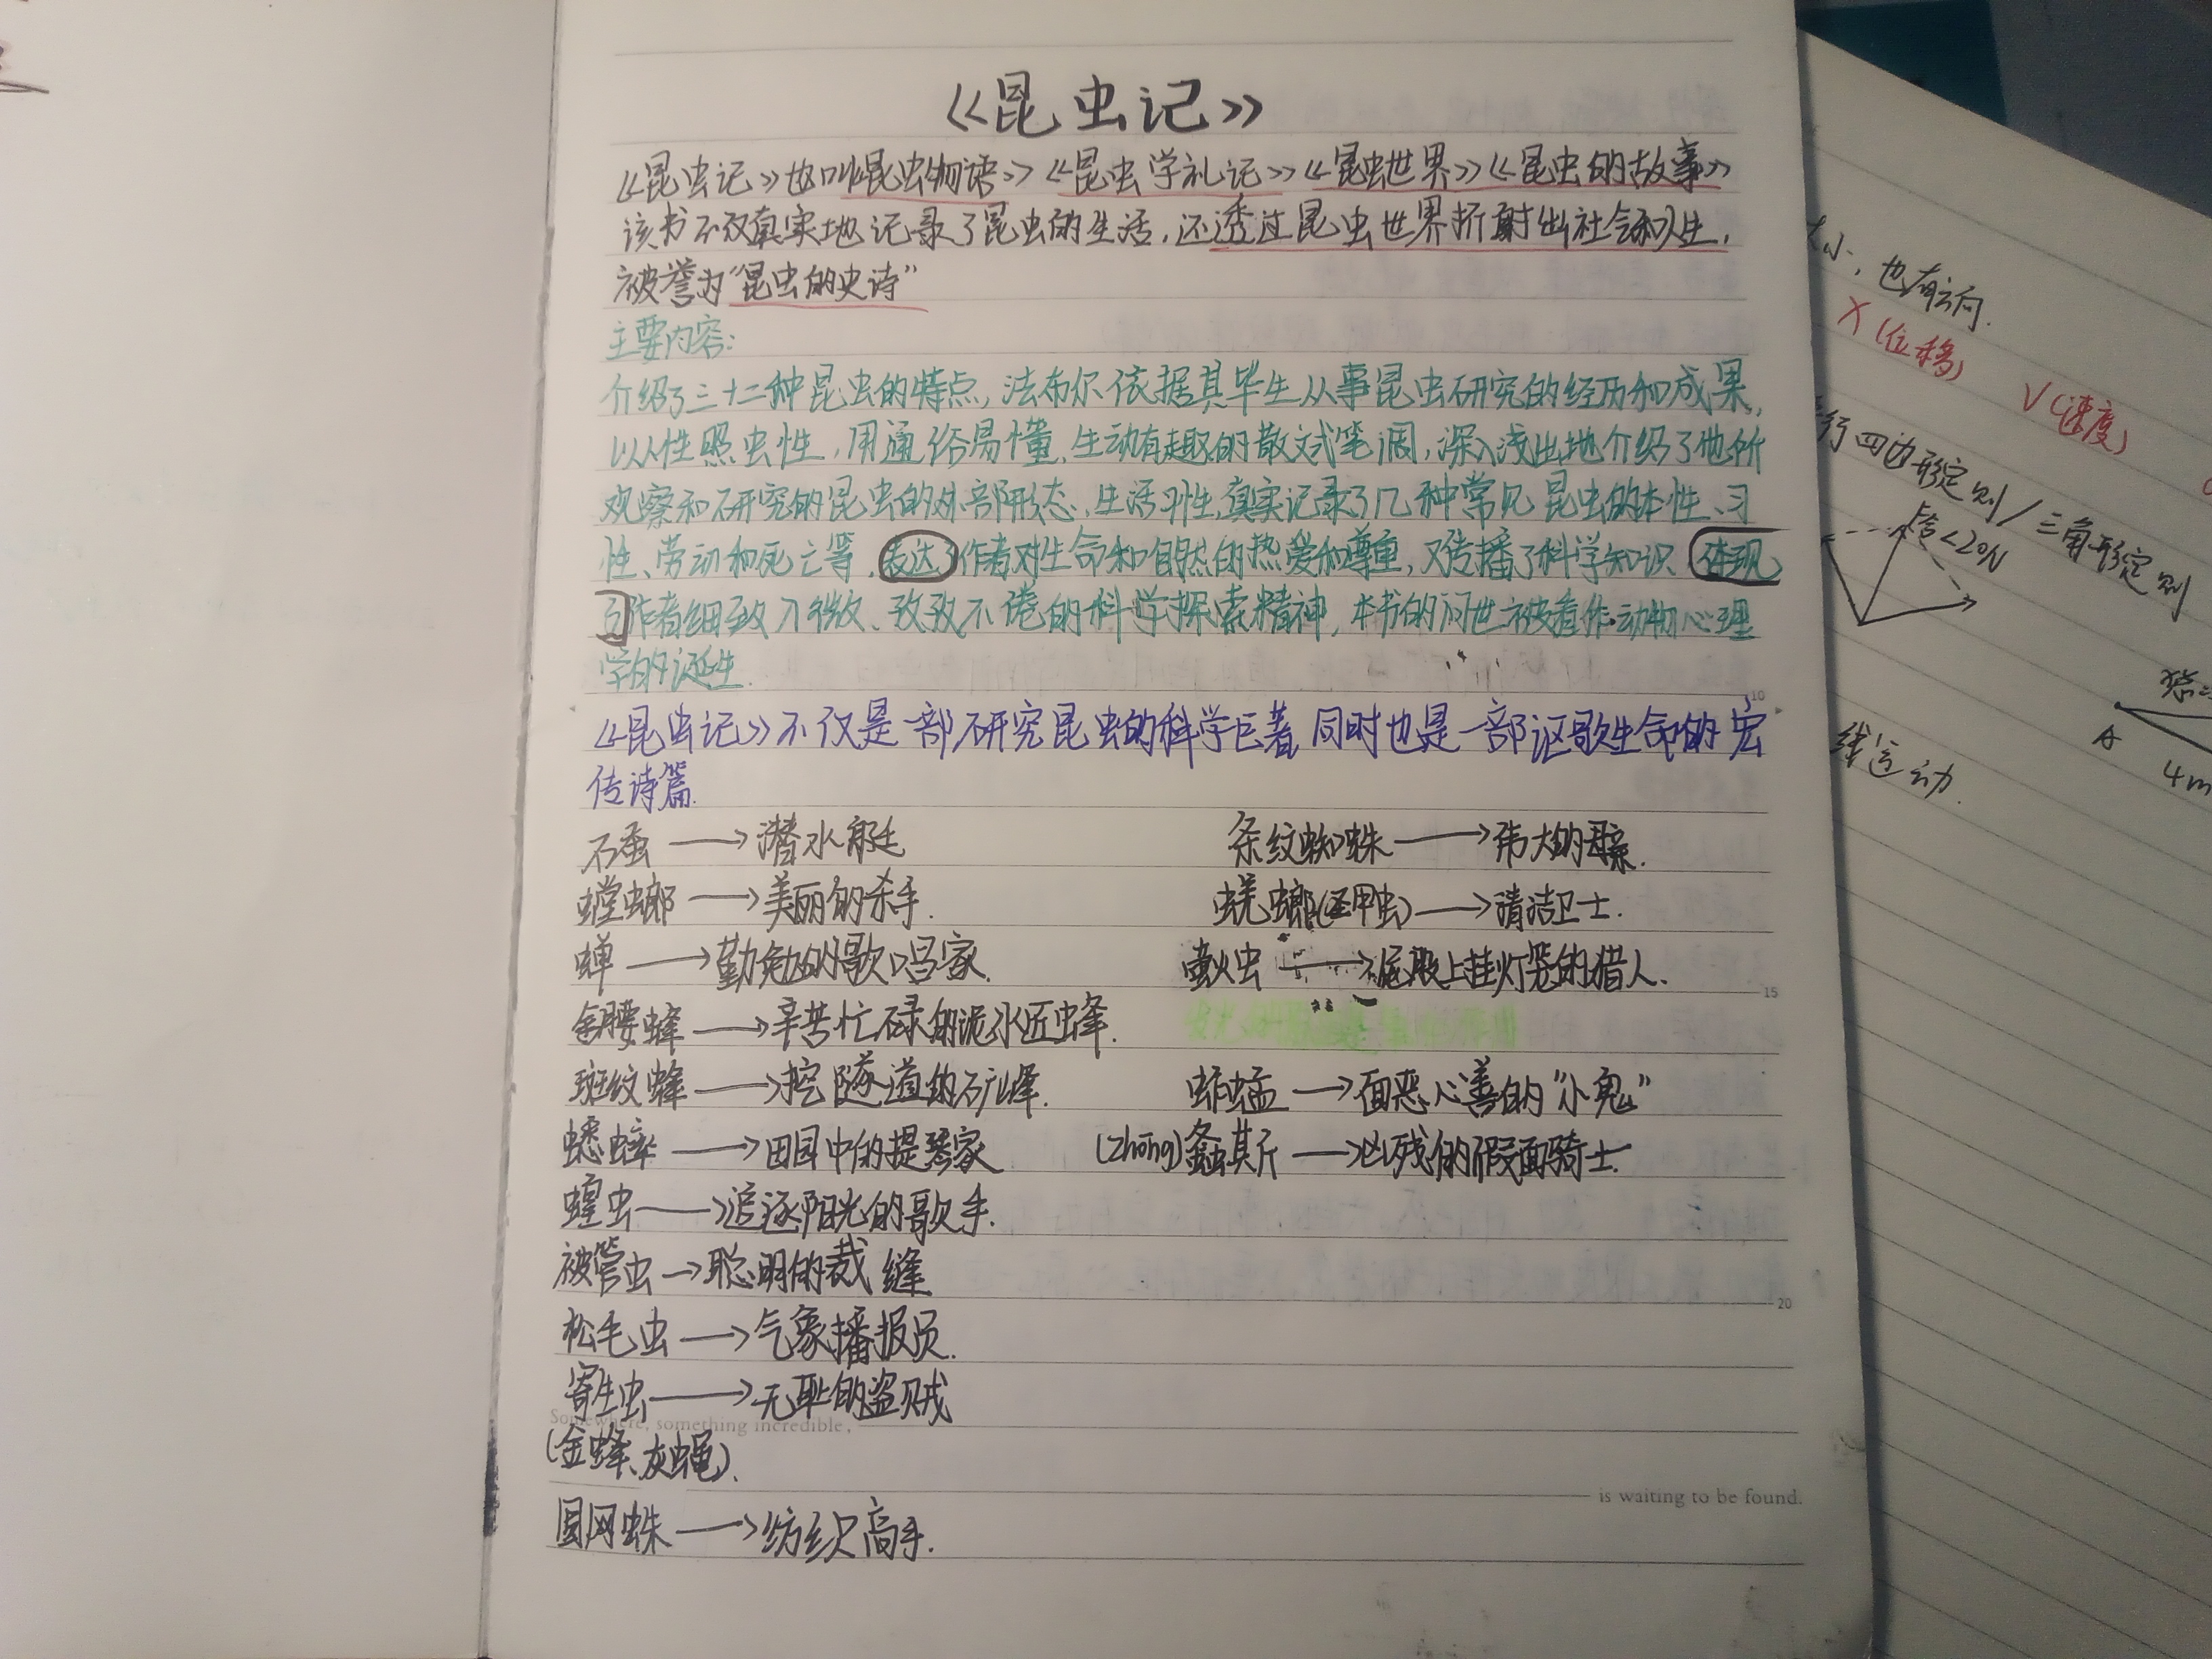 《昆虫记》
《昆虫记》也叫昆虫物语》《昆虫学札记》《昆虫世界》《昆虫的故事》
该书不仅真实地记录了昆虫的生活，还透过昆虫世界折射出社会和人生，
被誉为“昆虫的史诗”
主要内容：
介绍了三十二种昆虫的特点，法布尔依据其毕生从事昆虫研究的经历和成果，
以人性照虫性，用通俗易懂、生动有趣的散文式笔调，深入浅出地介绍了他所
观察和研究的昆虫的外部形态、生活习性，真实记录了几种常见昆虫的本性、习
性、劳动和死亡等，表达了作者对生命和自然的热爱和尊重，又传播了科学知识、体现
了作者细致入微、孜孜不倦的科学探索精神，本书的问世被看作动物心理
学的诞生.
《昆虫记》不仅是一部研究昆虫的科学巨著，同时也是一部讴歌生命的宏
传诗篇.
石蚕 → 潜水艇 条纹蜘蛛 → 伟大的母亲.
螳螂 → 美丽的杀手. 蜣螂(圣甲虫) → 清洁卫士.
蝉 → 勤勉的歌唱家. 萤火虫 → 尾段上挂灯笼的猎人.
金腰蜂 → 辛苦忙碌的泥水匠蜂.
15
斑纹蜂 → 挖隧道的矿蜂. 蚱蜢 → 面恶心善的“小鬼”
蟋蟀 → 田园中的提琴家 (zhōng)螽斯 → 凶残的假面骑士.
蝗虫 → 追逐阳光的歌手.
被管虫 → 聪明的裁缝
20
松毛虫 → 气象播报员.
寄生虫 → 无耻的盗贼
Somewhere, something incredible,
(金蜂、灰蝇).
is waiting to be found.
圆网蛛 → 纺织高手.
10
大小，也有方向.
X(位移)
V(速度)
行四边形定则/三角形定则
F合<20N
A
4m
线运动.